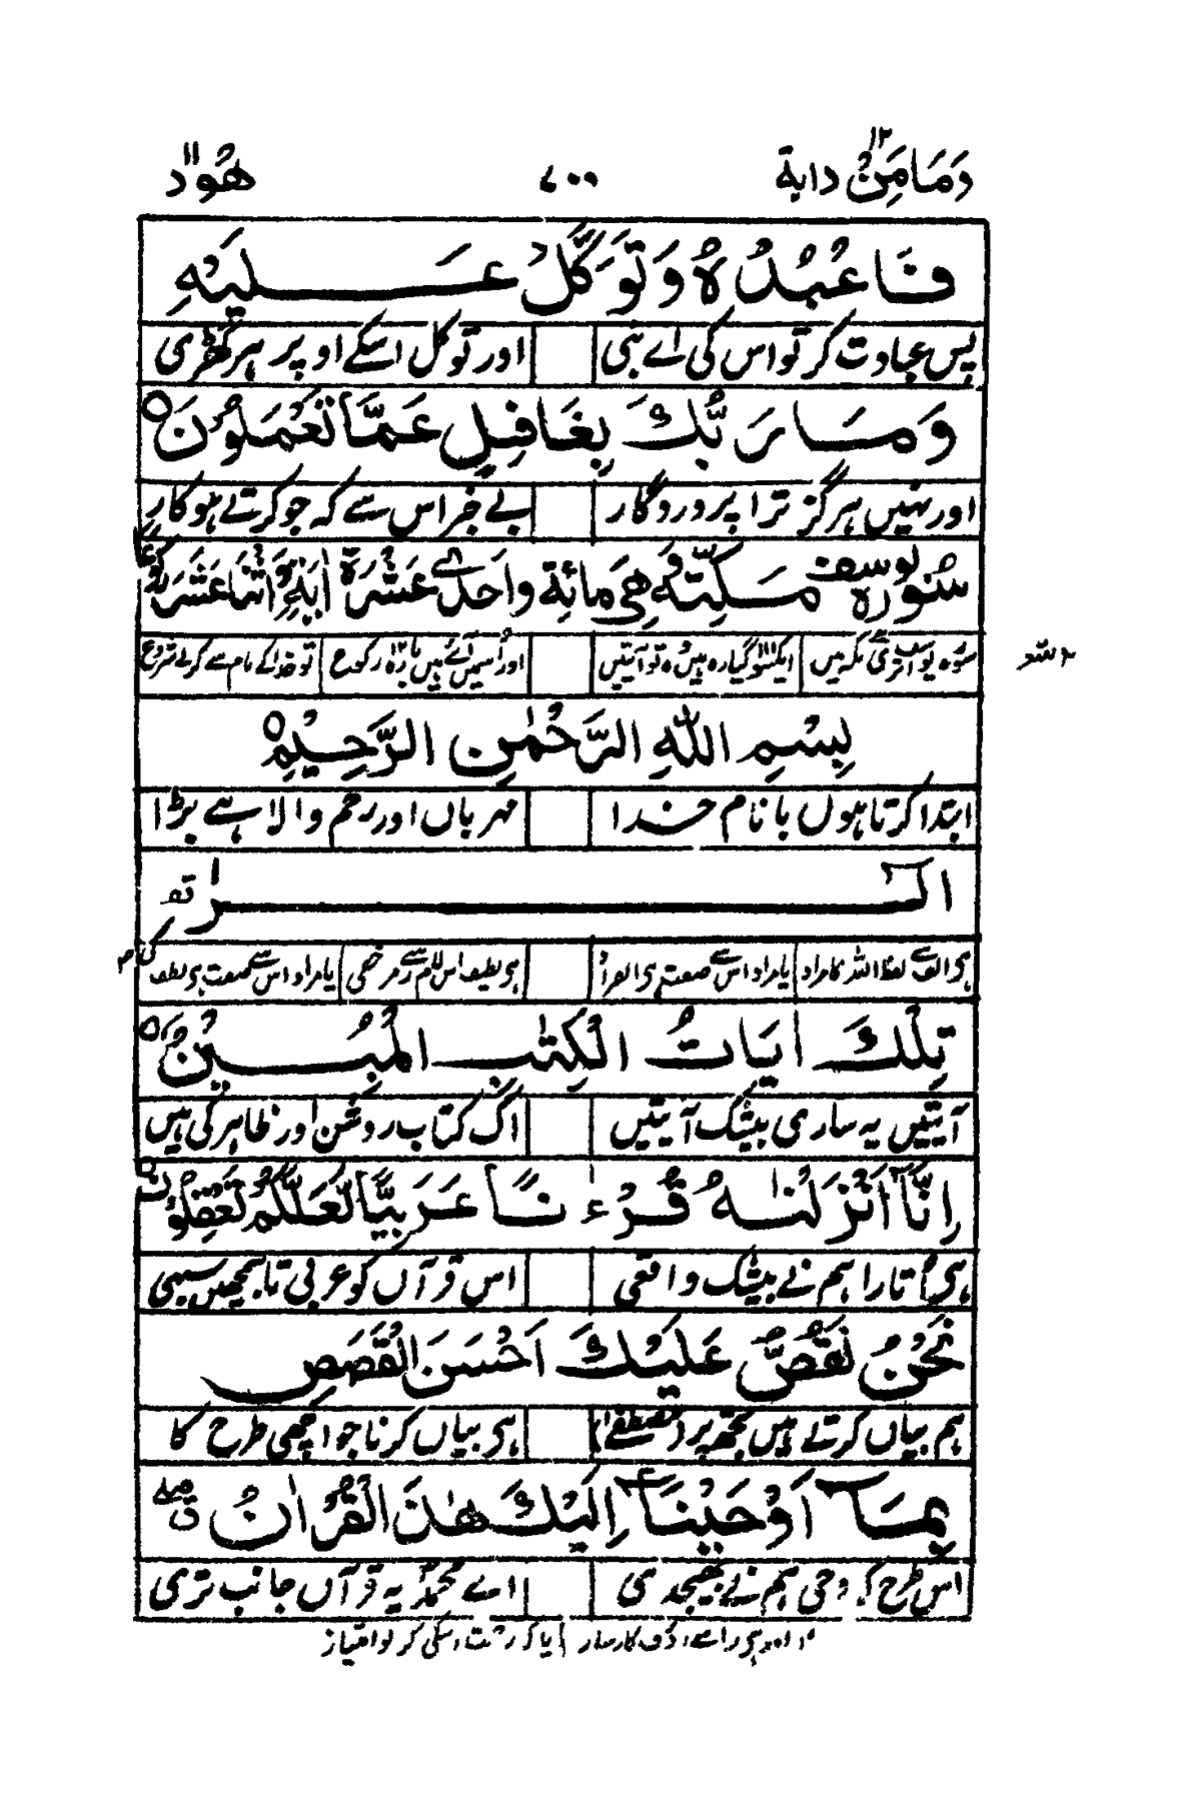 وَمَا مِنْ دابة ۱۲ ۷۰۰ هُود ۱۱
فَاعْبُدْهُ وَتَوَكَّلْ عَلَيْهِ
پس عبادت کر تو اس کی اے نبی اور توکل اسکے اوپر ہر گھڑی
وَمَا رَبُّكَ بِغَافِلٍ عَمَّا تَعْمَلُونَ
اور نہیں ہرگز ترا پروردگار بے خبر اس سے کہ جو کرتے ہو کار
سُورہ یوسف مَكِيّتہ وَهِيَ مائة واحدے عَشْرَةَ اٰيَةٍ وَّاثْنَا عَشَرَ
سورہ یوسف اتری مکہ میں ایکسو گیارہ ہیں تو آیتیں اور اسمیں آئے ہیں بارہ رکوع تو خدا کے نام سے کرلے شروع
بِسْمِ اللّٰهِ الرَّحْمٰنِ الرَّحِيْمِ
ابتدا کرتا ہوں با نام خدا مہرباں اور رحم والا ہے بڑا
الٓرٰ
ہی الف سے لفظ اللہ کا مراد یا مراد اس سے صفت ہی ہی لطیف اس لام سے رمز خفی یا مراد اس سے صفت ہی لطف کی
تِلْكَ اٰيَاتُ الْكِتٰبِ الْمُبِيْنُ
آیتیں یہ ساری بیشک آیتیں اک کتاب روشن اور ظاہر کی ہیں
اِنَّآ اَنْزَلْنٰهُ قُرْءٰنًا عَرَبِيًّا لَّعَلَّكُمْ تَعْقِلُوْنَ
ہی اُتارا ہم نے بیشک واقعی اس قرآں کو عربی تا سمجھیں سبھی
نَحْنُ نَقُصُّ عَلَيْكَ اَحْسَنَ الْقَصَصِ
ہم بیاں کرتے ہیں تجھ پر (مصطفےٰ) ہی بیاں کرنا جو اچھی طرح کا
بِمَآ اَوْحَيْنَآ اِلَيْكَ هٰذَا الْقُرْاٰنُ
اس طرح کہ وحی ہم نے بھیجدی اے محمدؐ یہ قرآں جانب تری